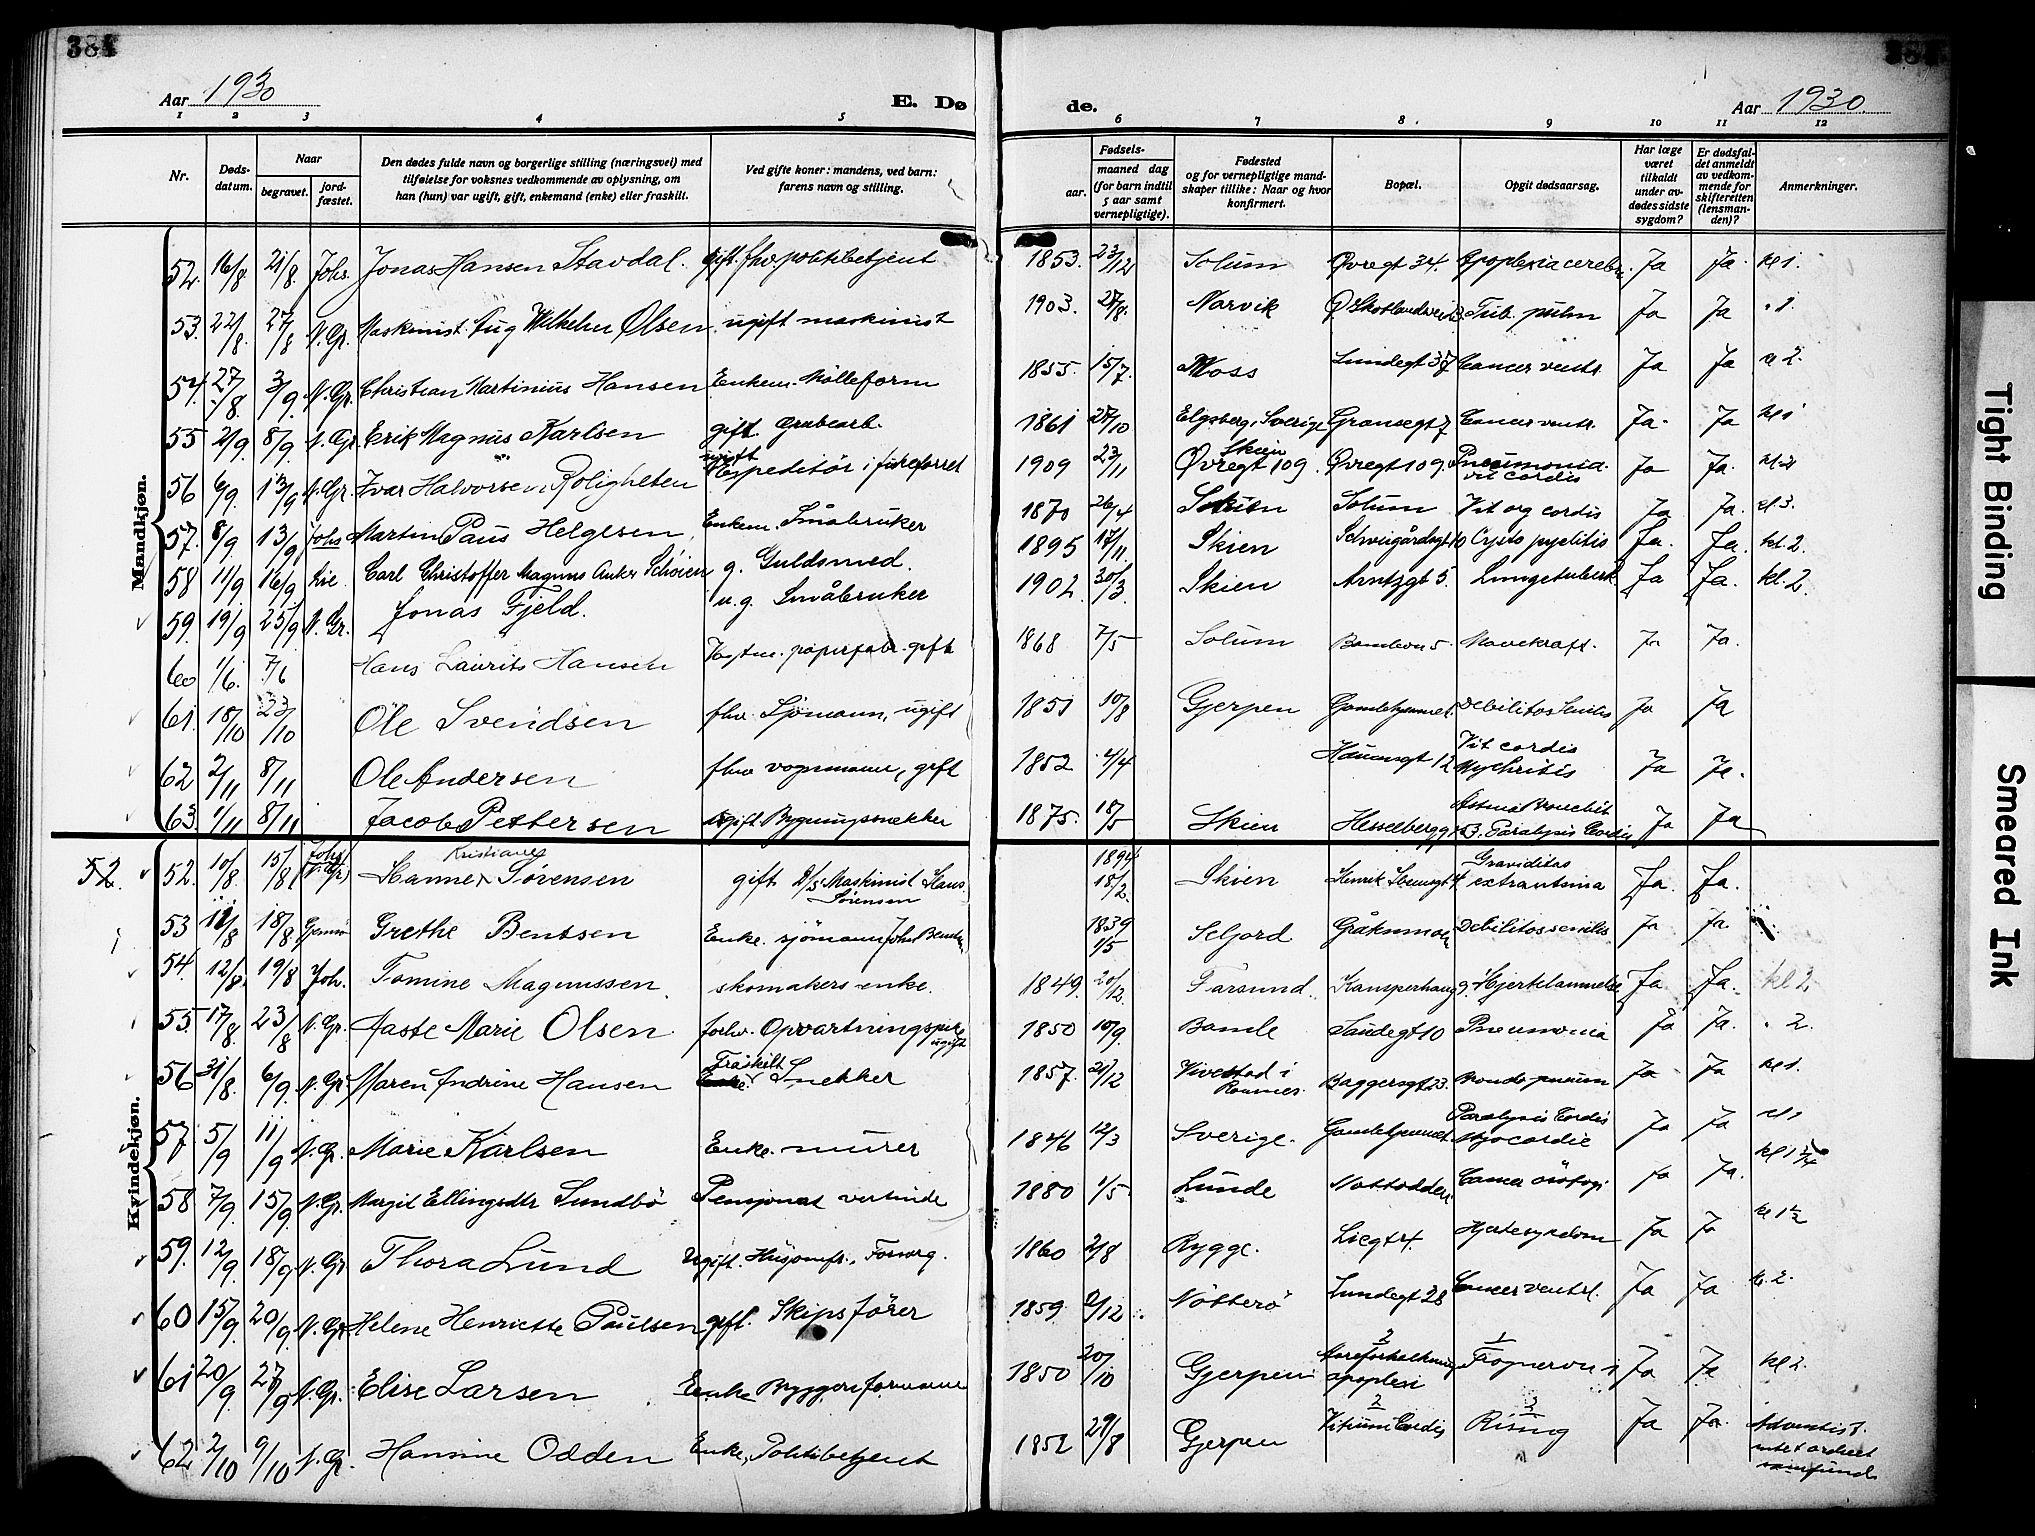 384
Aar 1930
E. Dø
de.
Aar 1930.
Nr.
Døds-datum.
Naar
begravet.
jord-fæstet.
Den dødes fulde navn og borgerlige stilling (næringsvei) med tilføielse for voksnes vedkommende av oplysning, om han (hun) var ugift, gift, enkemand (enke) eller fraskilt.
Ved gifte koner: mandens, ved barn: farens navn og stilling.
Fødsels-
aar.
maaned dag (for barn indtil 5 aar samt vernepligtige).
Fødested og for vernepligtige mandskaper tillike: Naar og hvor konfirmert.
Bopæl.
Opgit dødsaarsag.
Har læge været tilkaldt under avdødes sidste sygdom?
Er dødsfaldet anmeldt av vedkommende for skifteretten (lensmanden)?
Anmerkninger.
1 2 3 4 5 6 7 8 9 10 11 12
Mandkjøn.
52. 16/8 21/8. Johs. Jonas Hansen Stavdal. gift. fhv. politibetjent 1853. 23/12 Solum Øvregt 34. Apoplexia cerebri. Ja Ja. kl 1.
53. 22/8. 27/8 N. Gr. Maskinist Aug Wilhelm Olsen. ugift maskinist 1903. 27/8. Narvik Tub. pulm Ja Ja " 1.
54. 27/8. 3/9. N. Gr. Christian Martinius Hansen Enkem. Mølleform 1855. 15/7. Moss Lundegt 37 Cancer ventr. Ja Ja " 2.
55 2/9. 8/9. N. Gr. Erik Magnus Karlsen gift. Grubearb. 1861 /10 Elgsberg, Sverige Gransegt 7 Cancer ventr. Ja. Ja kl 1
56 6/9. 13/9 N. Gr. Ivar Halvorsen Rolighten ugift Expeditør i 1909 23/11 Skien Øvregt 109. Øvregt 109. Pneumonia. vit cordis Ja Ja. kl. 2
57. 8/9. 13/9 Johs Martin Paus Helgesen, Enkem. Småbruker 1870 26/4 Solum Vit org cordis Ja Ja. kl 3.
58 11/9 16/9 Lie. Carl Christoffer Magnus Anker Schøien g. Guldsmed. 1895 17/11. Skien Schweigårdsgt 10 Cysto pyelitis Ja. Ja. kl. 2.
59. 19/9 25/9 N. Gr. Jonas Fjeld. u. g. Småbruker 1902. 30/3. Skien Arntzgt 5. Lungetuberk Ja Ja. kl. 2
60 1/6. 7/6 Hans Laurits Hansen papirfabr. gift 1868 7/5 Solum 5. Mavekræft. Ja Ja.
61. 18/10 23/10 Ole Svendsen fhv. Sjømann, ugift 1851 10/8 Gjerpen Gamlehjemmet. Debilitas Senilis Ja Ja
62 2/11 8/11 Ole Andersen fhv vognmann, gift 1852 4/4 12 Vit cordis Ja Ja.
63. 1/11 8/11 Jacob Pettersen gift Bygningssnekker 1875. 18/5 Skien Hesselbergg Astma Bronchit Paralysis Cordis Ja Ja
Kvindekjøn.
52. 52. 10/8. 15/8 Johs (N. Gr) Hanne Kristiane Sørensen gift D/s. Maskinist Hans Sørensen 1894 18/2. Skien Henrik Ibsensgt 4 Graviditas extrautrina Ja. Ja.
53 /8 18/8. Grethe Bentsen Enke. sjømann John Bentsen 1839 1/5 Seljord Debilitas senilis. Ja Ja.
54. 12/8. 19/8 Joh. Tomine Magnussen. skomakers enke. 1849. 20/12. Farsund. Kamperhaug 9. Hjertelammelse Ja Ja. kl 2.
55. 17/8. 23/8 N. Gr. Aaste Marie Olsen forhv. Opvartningspike ugift 1850 10/9. Bamle Landegt 10 Pneumonia Ja Ja. " 2.
56 31/8. 6/9. N. Gr. Maren Andrine Hansen Fraskilt Snekker 1857. 21/12 Vivestad i Ramnes. Baggersgt 23. Broncho pneum Ja Ja kl 1.
57. 5/9 11/9 N. Gr. Marie Karlsen Enke. murer 1846 12/3 Sverige. Gamlehjemmet. Paralysis Cordis Myocardie Ja Ja kl 1
58 7/9. 15/9. N. Gr. Margit Ellingsdtr Sundbö Pensjonat vertinde 1880 1/5 Lunde Nottodden Cancer Ja Ja.
59. 12/9. 18/9 N. Gr Thora Lund Ugift. Husjomfr., Forsorg. 1860 2/8 Rygge. Liegt 4. Hjertesykdom Ja Ja
60 15/9. 20/9. N. Gr Helene Henriette Paulsen gift. Skipsfører 1859 2/12 Nötterö Lundegt 28 Cancer ventrl. Ja Ja kl. 2.
61 20/9. 27/9 N. Gr. Elise Larsen Enke Bryggeriformann 1850 20/10 Gjerpen Aareforkalkning apoplexi Frogner Ja Ja kl 2.
62 2/10 9/10 N. Gr. Hansine Odden Enke, Politibetjent 1852 29/8 Gjerpen Vitium Cordis Rising Ja Ja. Adventist.
Tight Binding
Smeared Ink